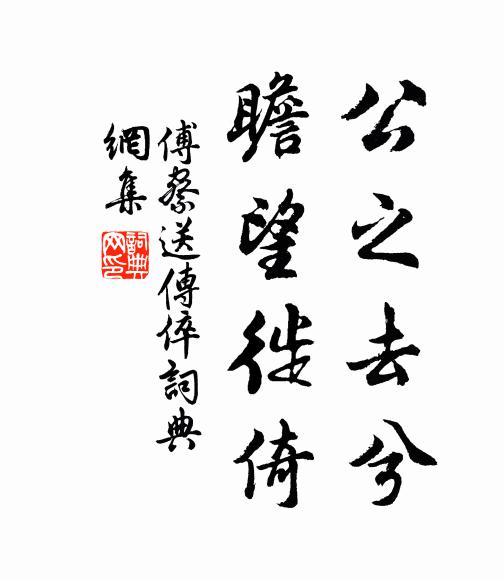 公之去兮
瞻望徙倚
傅察送傅倅詞典
網集
詞典
网印